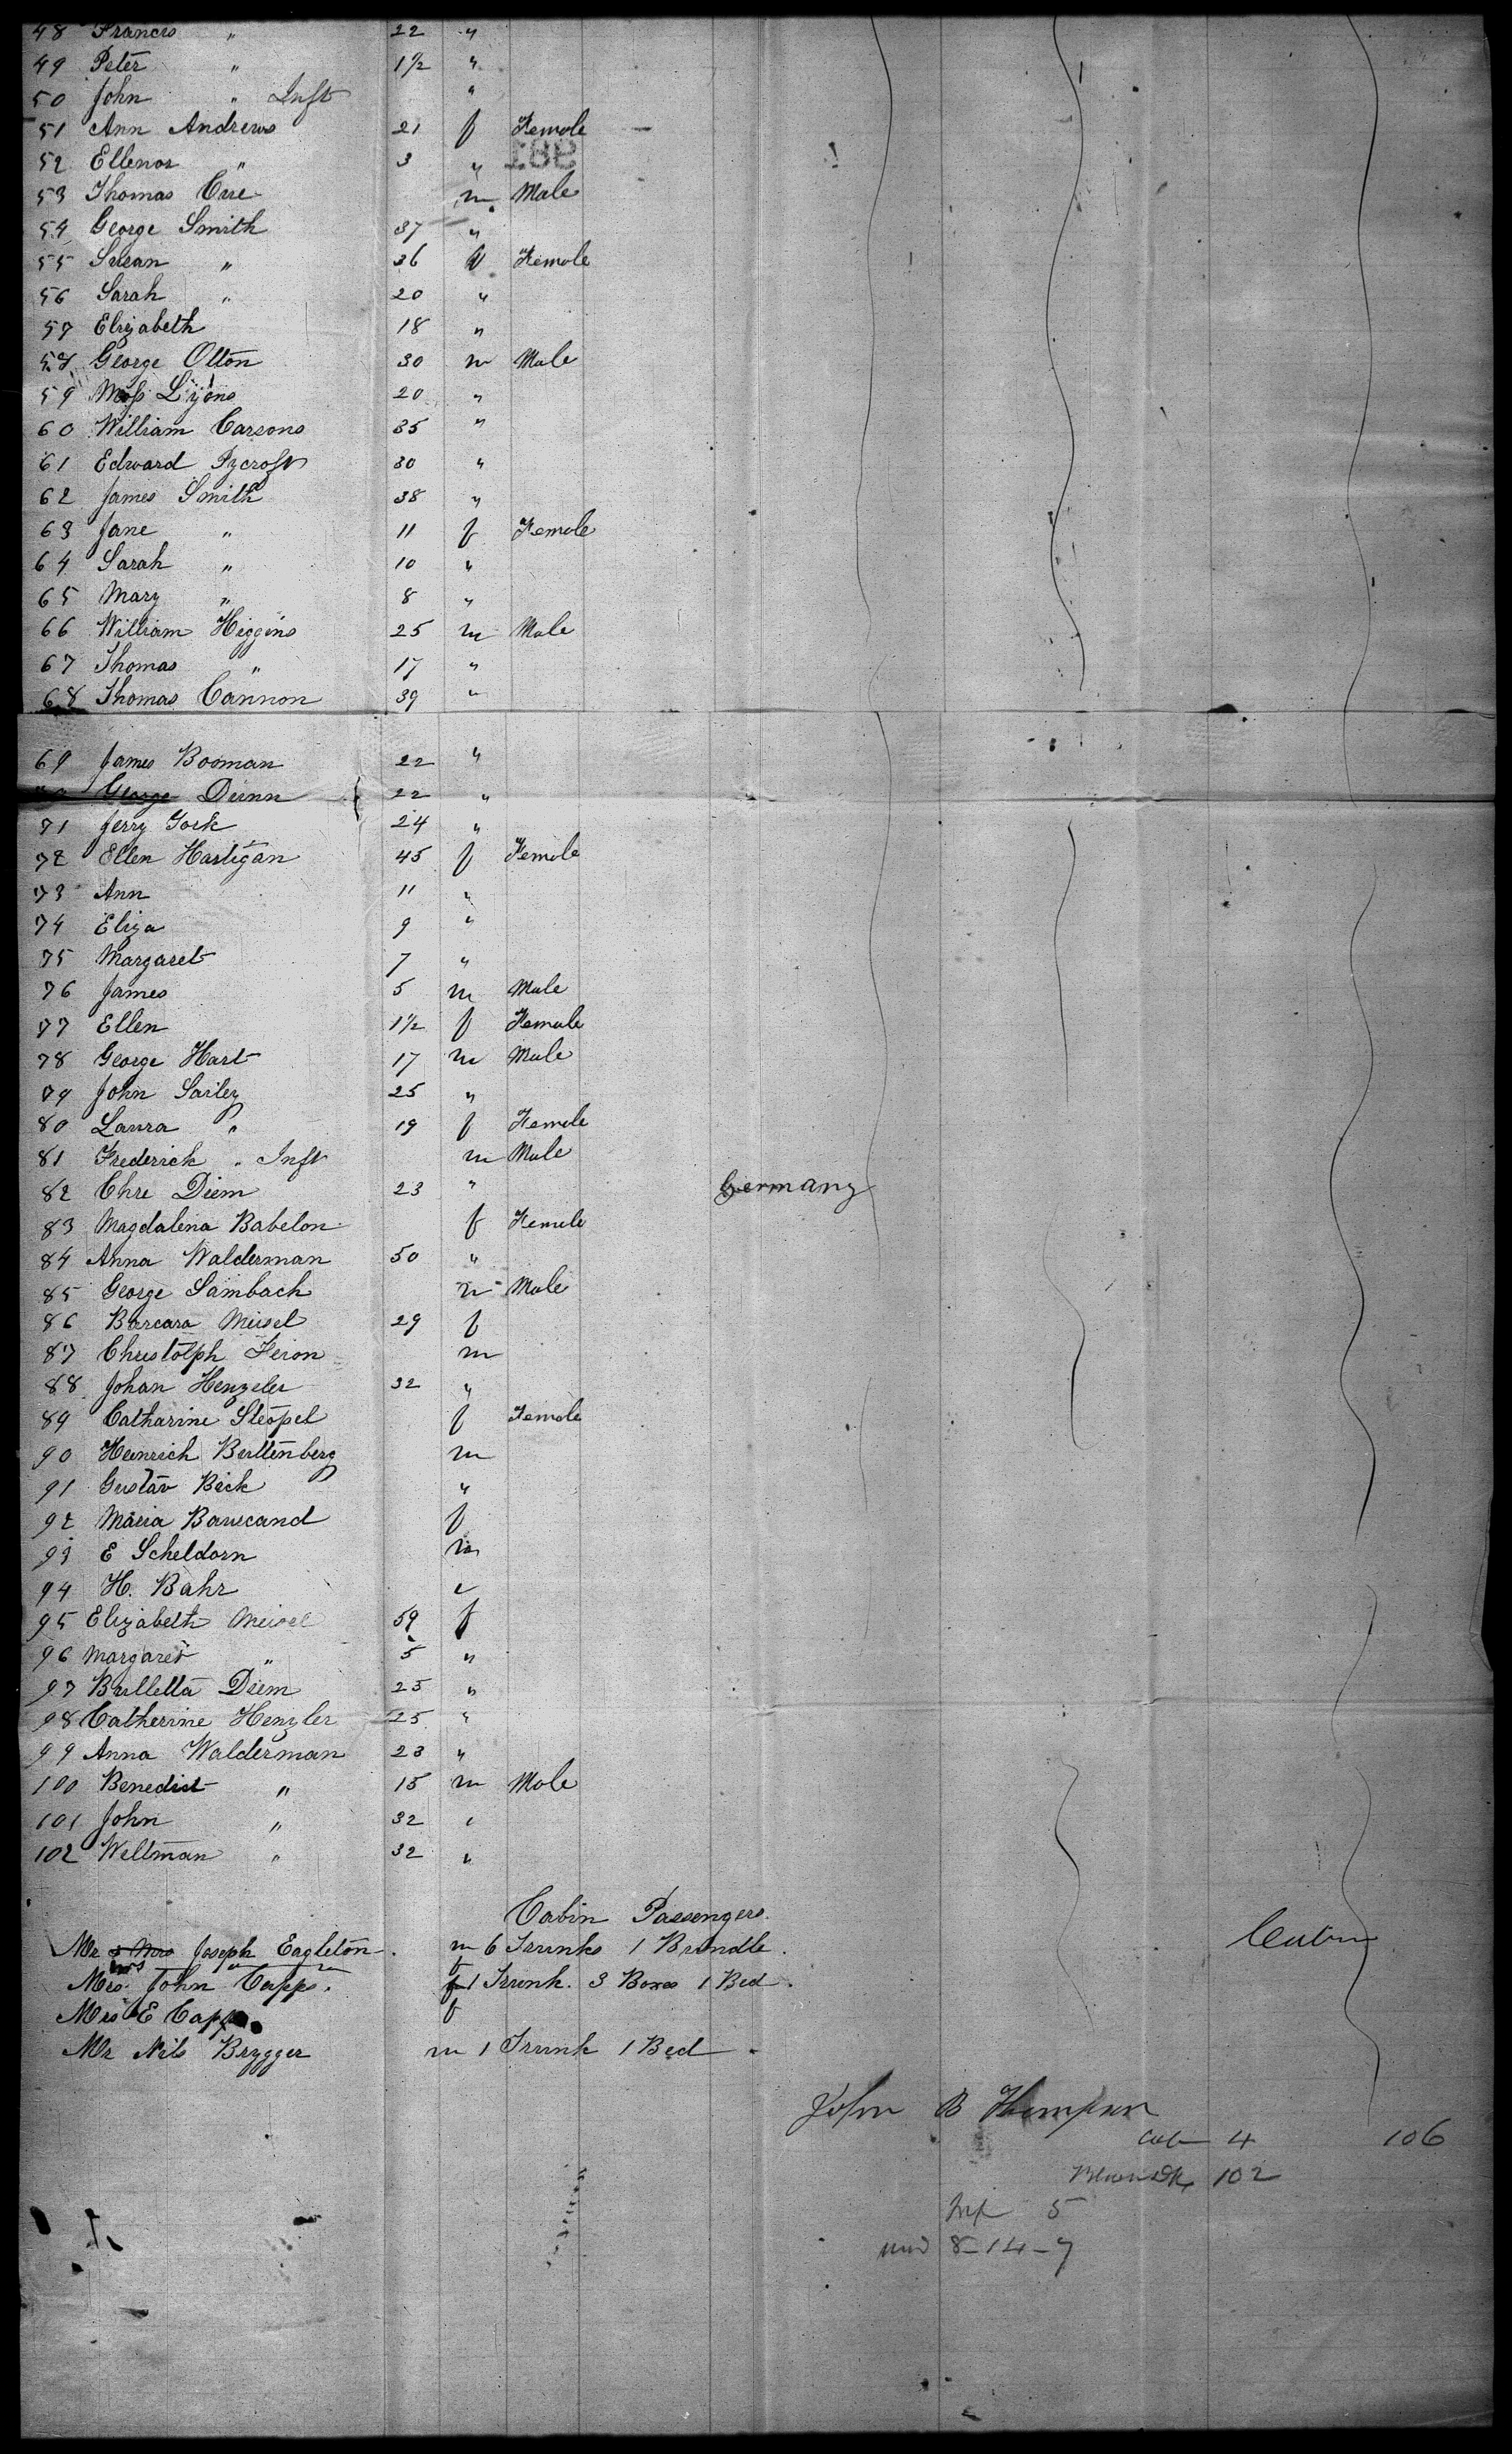 48 Francis " 22 "
49 Peter " 1½ "
50 John " Inft "
51 Ann Andrews 21 f Female
52 Ellenor " 3 "
53 Thomas m Male
54 George Smith 37 "
55 Susan " 36 f Female
56 Sarah " 20 "
57 Elizabeth 18 "
58 George Olton 30 m Male
59 Moss Lyons 20 "
60 William Carsons 35 "
61 Edward Pycroft 30 "
62 James Smith 38 "
63 Jane " 11 f Female
64 Sarah " 10 "
65 Mary " 8 "
66 William Higgins 25 m Male
67 Thomas " 17 "
68 Thomas Cannon 39 "
69 James Booman 22 "
George Dunn 22 "
71 Jerry York 24 "
72 Ellen Hartigan 45 f Female
73 Ann 11 "
74 Eliza 9 "
75 Margaret 7 "
76 James 5 m Male
77 Ellen 1½ f Female
78 George Hart 17 m Male
79 John Sarley 25 "
80 Laura " 19 f Female
81 Frederick " Inft m Male
82 Chre Diem 23 " Germany
83 Magdalena Babelon f Female
84 Anna Walderman 50 "
85 George Sambach m Male
86 Barcara Meisel 29 f
87 Christolph Feron m
88 Johan Henzeler 32 "
89 Catharine Steopel f Female
90 Heinrich Buttenberg m
91 Gustav Beck "
92 Maria Bawcand f
93 E Scheldorn m
94 H. Bahr "
95 Elizabeth Meisel 59 f
96 Margaret " 5 "
97 Bulletta Diem 25 "
98 Catherine Henzler 25 "
99 Anna Walderman 23 "
100 Benedict " 15 m Male
101 John " 32 "
102 Weltman " 32 "
Cabin Passengers.
Mr & Mrs Joseph Eagleton . m 6 Trunks 1 Bundle . Cabin
Mrs " " f
Mrs. John Capps. f 1 Trunk. 3 Boxes 1 Bed .
Mrs E Capps f
Mr Nils Brygger m 1 Trunk 1 Bed .
John B Thompson
Cab 4 106
102
Inf 5
8-14-7